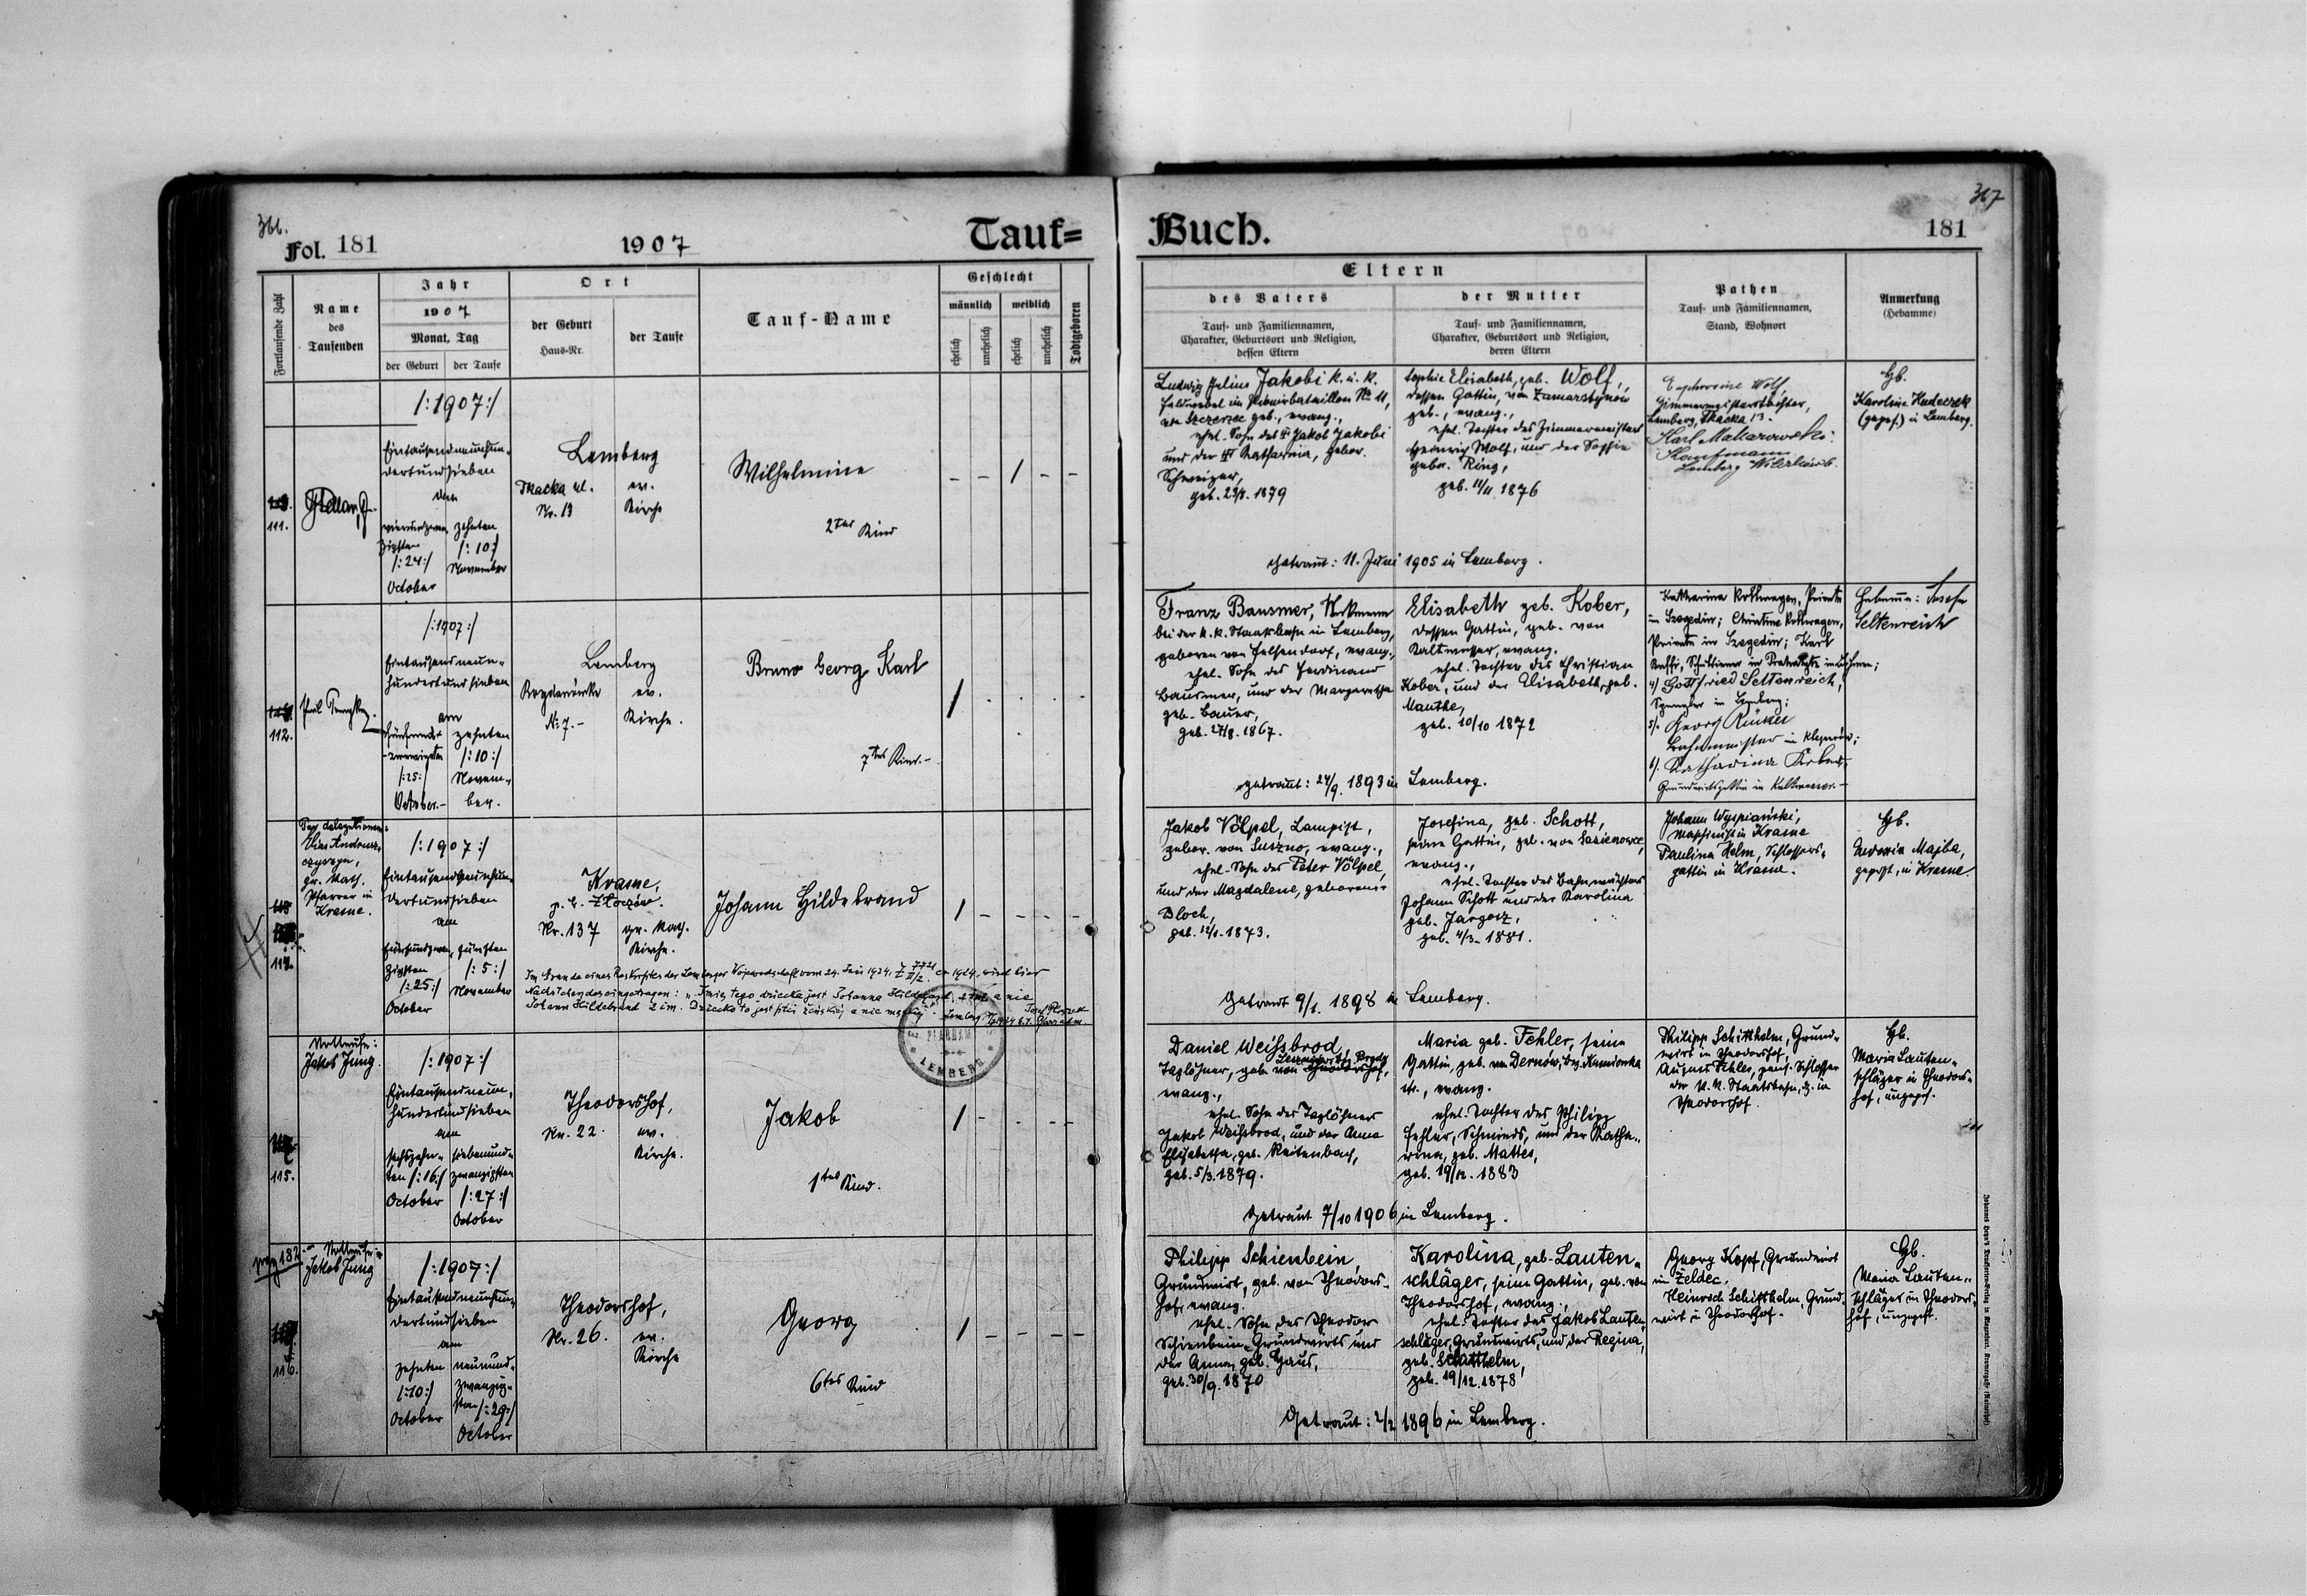 366.
Fol. 181
1907
Tauf=
Fortlaufende Zahl
Name
des
Taufenden
Jahr
1907
Monat, Tag
der Geburt
der Taufe
Ort
der Geburt
Haus-Nr.
der Taufe
Tauf-Name
Geschlecht
männlich
weiblich
ehelich
unehelich
ehelich
unehelich
Todtgeboren
/:1907:/
111.
Eintausendneunhun-
dertundsieben
den
vierundzwan-
zigsten
/:24:/
October
zehnten
/:10:/
November
Lemberg
Tkacka ul.
Nr. 13
ev.
Kirche
Wilhelmine
2tes Kind
/:1907:/
112.
Eintausendneun-
hundertundsieben
am
fünfund-
zwanzigsten
/:25:/
October.-
zehnten
/:10:/
Novem-
ber.
Lemberg
No 7.-
ev.
Kirche.
Bruno Georg Karl
7tes Kind.-
Per delegationem:
gr. Kath.
Pfarrer in
Krasne.
/:1907:/
Eintausendneunhun-
dertundsieben
am
fünfundzwan-
zigsten
/:25:/
October
fünften
/:5:/
November
Krasne,
p. L. Złoczów.
Nr. 137
gr. Kath.
Kirche.
Johann Hildebrand
Im Grunde eines Reskriptes der Lemberger Wojewodschaft vom 24. Juni 1924, wird hier
Nachstehendes eingetragen: "Imię tego dziecka jest Johanna Hildegard, 2 im. a nie
Johann Hildebrand 2 im. Dziecko to jest płci żeńskiej a nie męskiej".
LEMBERG
Vollmacht:
Jakob Jung.
/:1907:/
115.
Eintausendneun-
hundertundsieben
am
sechszehn-
ten /:16:/
October
siebenund-
zwanzigsten
/:27:/
October
Theodorshof,
Nr. 22.
ev.
Kirche.
Jakob
1tes Kind.
pag 182
Jakob Jung
/:1907:/
116.
Eintausendneunhun-
dertundsieben
am
zehnten
/:10:/
October
neunund-
zwanzig-
sten /:29:/
October
Theodorshof,
Nr. 26.
ev.
Kirche
Georg
6tes Kind
367
Buch.
181
Eltern
des Vaters
Tauf- und Familiennamen,
Charakter, Geburtsort und Religion,
dessen Eltern
der Mutter
Tauf- und Familiennamen,
Charakter, Geburtsort und Religion,
deren Eltern
Pathen
Tauf- und Familiennamen,
Stand, Wohnort
Anmerkung
(Hebamme)
Ludwig Julius Jakobi k. u. k.
Feldwebel im Pionierbataillon No 11,
von Szczerzec geb., evang.,
ehel. Sohn des Jakob Jakobi
und der Katharina, gebor.
Schweizer,
geb. 1879
Sophie Elisabeth, geb. Wolf,
dessen Gattin, von Zamarstynów
geb., evang.,
ehel. Tochter des Zimmermeisters
Heinrich Wolf, und der Sophie
gebor. Ring,
geb. 11/11 1876
Getraut: 11. Juni 1905 in Lemberg.
Euphrosine Wolf,
Zimmermeisterstochter,
Lemberg, Tkacka 13.
Karl Makarowski
Kaufmann
Lemberg
Hb.
Karolina Hudeczek
(gepr.) in Lemberg.
Franz Bausmer, Werkmann
bei der k. k. Staatsbahn in Lemberg,
geboren von Felsendorf, evang.,
ehel. Sohn des Ferdinand
Bausmer, und der Margaretha
geb. Bauer,
geb. 27/8. 1867.
Elisabeth geb. Kober,
dessen Gattin, geb. von
Kaltwasser, evang.
ehel. Tochter des Christian
Kober, und der Elisabeth, geb.
Manthe,
geb. 10/10 1872
getraut: 24/9. 1893 in Lemberg.
Katharina Rothwagen, Private
in Szegedin; Christine Rothwagen,
Private in Szegedin; Karl
4) Gottfried Seltenreich,
Spengler in Lemberg;
5). Georg Rücker
Bahnmeister in Kleparów;
6). Katharina Kober
Grundwirtsgattin in Kaltwasser.-
Hebamme: Josefa
Seltenreich
Jakob Völpel, Lampist,
gebor. von Suszno, evang.,
ehel. Sohn des Peter Völpel,
und der Magdalene, geborene
Bloch,
geb. 12/1. 1873.
Josefina, geb. Schott,
seine Gattin, geb. von Lazienowce,
evang.,
ehel. Tochter des Bahnwächters
Johann Schott und der Karolina
geb. Jargosz,
geb. 4/3. 1881.
Getraut 9/1. 1898 in Lemberg.
Johann Wyspiański,
Maschinist in Krasne
Paulina Helm, Schlossers-
gattin in Krasne.
Hb.
Eudoxia Majba,
geprft., in Krasne.
Daniel Weißbrod,
Taglöhner, geb. von Theodorshof,
evang.,
ehel. Sohn des Taglöhners
Jakob Weißbrod, und der Anna
Elisabetha, geb. Reitenbach,
geb. 5/3. 1879.
Maria geb. Fehler, seine
Gattin, geb. von Dernów, bez. Kamionka
str., evang.
ehel. Tochter des Philipp
Fehler, Schmieds, und der Katha-
rina, geb. Mattes,
geb. 19/12. 1883
Getraut 7/10 1906 in Lemberg.
Philipp Schitthelm, Grund-
wirt in Theodorshof,
August Fehler, pens. Schlosser
der k. k. Staatsbahn, z. in
Theodorshof.
Hb.
Maria Lauten-
schläger in Theodors-
hof, ungepr.
Philipp Schienbein,
Grundwirt, geb. von Theodors-
hof, evang.
ehel. Sohn des Theodor
Schienbein, Grundwirts und
der Anna, geb. Gaus,
geb. 30/9. 1870
Karolina, geb. Lauten-
schläger, seine Gattin, geb. von
Theodorshof, evang.,
ehel. Tochter des Jakob Lauten-
schläger, Grundwirts, und der Regina,
geb. Schitthelm,
geb. 19/12. 1878
Getraut: 2/2 1896 in Lemberg.
Georg Kopf, Grundwirt
in Żeldec.
Heinrich Schitthelm, Grund-
wirt in Theodorshof.
Hb.
Maria Lauten-
schläger in Theodors-
hof, ungeprft.